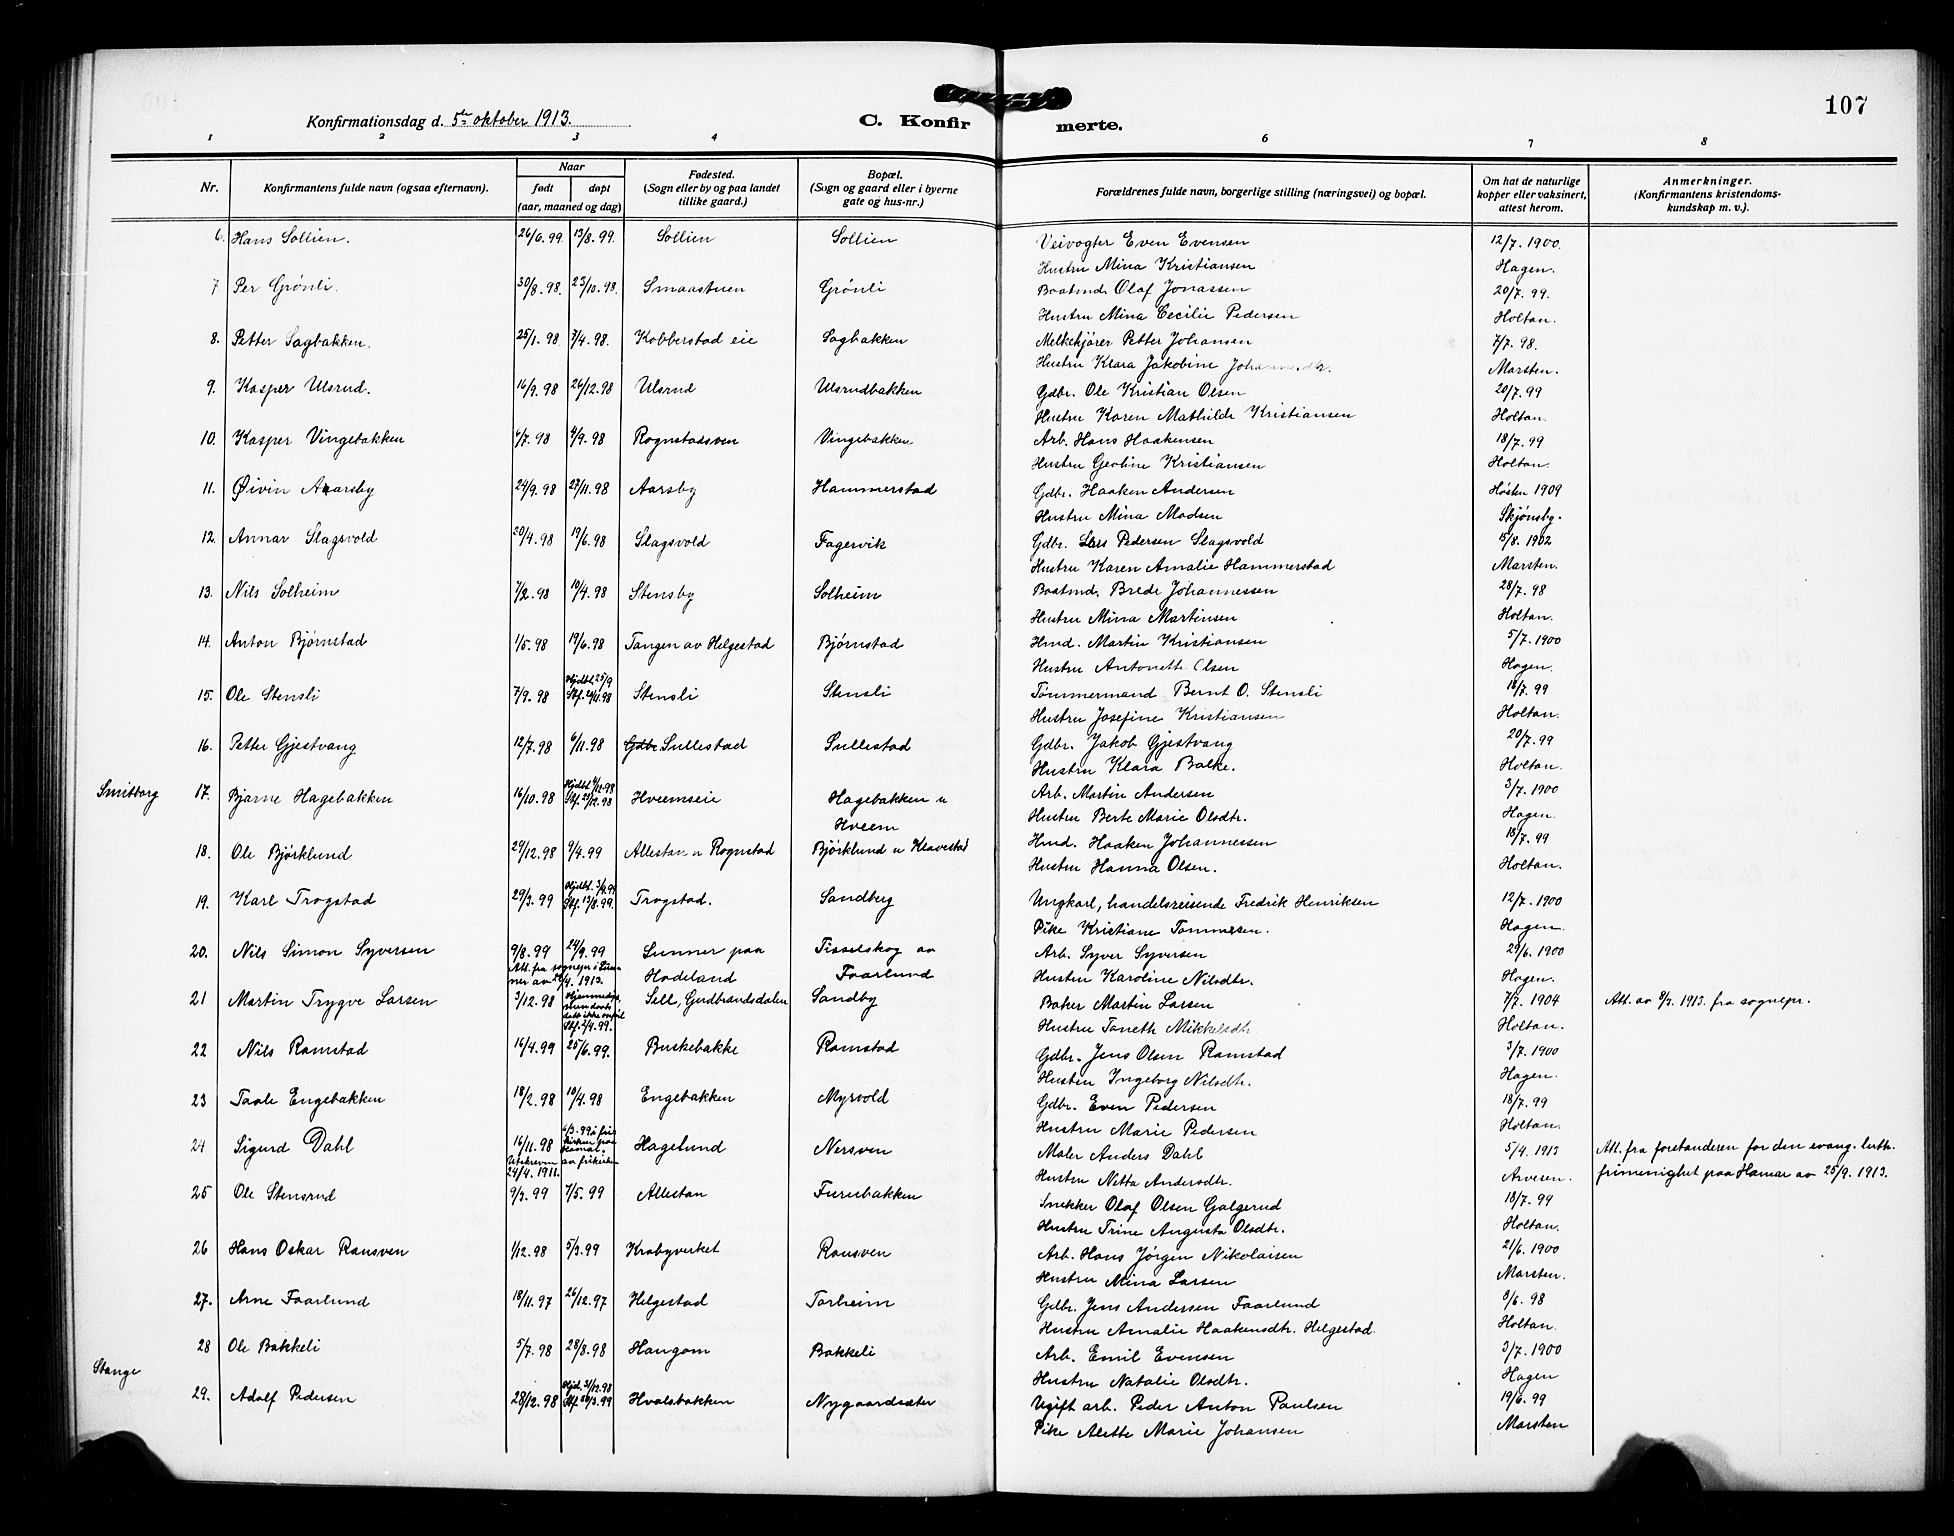 107
Konfirmationsdag d. 5te oktober 1913.
C. Konfirmerte.
1 2 3 4 5 6 7 8
Nr. Konfirmantens fulde navn (ogsaa efternavn). Naar født døpt (aar, maaned og dag) Fødested. (Sogn eller by og paa landet tillike gaard.) Bopæl. (Sogn og gaard eller i byerne gate og hus-nr.) Forældrenes fulde navn, borgerlige stilling (næringsvei) og bopæl. Om hat de naturlige kopper eller vaksinert, attest herom. Anmerkninger. (Konfirmantens kristendomskundskap m. v.).
6. Hans Sollien. 26/6.99 13/8.99. Sollien Sollien Veivogter Even Evensen 12/7. 1900.
Hustru Mina Kristiansen Hagen.
7. Per Grönli. 30/8.98. 23/10.98. Smaastuen Grönli Baatmd. Olaf Jonassen 20/7. 99.
Hustru Mina Cecilie Pedersen Holtan.
8. Petter Sagbakken. 25/1.98 7/4.98. Kobberstad eie Sagbakken Melkekjører Petter Johansen 7/7. 98.
Hustru Klara Jakobine Johannesdtr. Marsten.
9. Kasper Ulsrud. 16/9.98 26/12.98 Ulsrud Ulsrudbakken Gdbr. Ole Kristian Olsen 20/7. 99
Hustru Karen Mathilde Kristiansen Holtan.
10. Kasper Vingebakken 4/7.98 4/9.98 Rognstadsven Vingebakken Arb. Hans Haakensen 18/7. 99
Hustru Geoline Kristiansen Holtan.
11. Øivin Aarsby 24/9.98 27/11.98 Aarsby Hammerstad Gdbr. Haaken Andersen Høsten 1909
Hustru Mina Madsen Skjønsby.
12. Annar Slagsvold 30/4.98 19/6.98 Slagsvold Fagervik Gdbr. Lars Pedersen Slagsvold 15/8. 1902
Hustru Karen Amalie Hammerstad Marsten.
13. Nils Solheim 7/2.98 10/4.98 Stensby Solheim Baatmd. Brede Johannessen 28/7. 98
Hustru Mina Martinsen Holtan.
14. Anton Bjørnstad 1/5.98 19/6.98 Tangen av Helgestad Bjørnstad Hmd. Martin Kristiansen 5/7. 1900
Hustru Antonette Olsen Hagen.
15. Ole Stensli 7/9.98 Hjdbt. 25/9 Stf. 20/11.98 Stensli Stensli Tömmermand Bernt O. Stensli 18/7. 99
Hustru Josefine Kristiansen Holtan.
16. Petter Gjestvang 12/7.98 6/11.98 Gdbr. Sullestad Sullestad Gdbr. Jakob Gjestvang 20/7. 99
Hustru Klara Balke. Holtan.
Smitborg 17. Bjarne Hagebakken 16/10.98 Hjdbt. 4/12.98 Stf. 26/12.98 Hveemseie Hagebakken u Hveem Arb. Martin Andersen 3/7. 1900
Hustru Berte Marie Olsdtr. Hagen.
18. Ole Bjørklund 29/12.98 9/4.99 Allestan u Rognstad Bjørklund u Klavestad Hmd. Haaken Johannessen 18/7. 99
Hustru Hanna Olsen. Holtan.
19. Karl Trogstad 29/3.99 Hjdbt. 3/4.99 Stf. 13/8.99. Trogstad. Sandberg Ungkarl, handelsreisende Fredrik Henriksen 12/7. 1900
Pike Kristiane Tommesen. Hagen.
20. Nils Simon Syversen 9/8.99 24/9.99 Lunner paa Hadeland Tisselskog av Faarlund Arb. Syver Syversen 29/6. 1900
Att. fra sognepr. i Lunner av 24/4. 1913. Hustru Karoline Nilsdtr. Hagen.
21 Martin Trygve Larsen 3/12.98 Hjemmedøp. Stf. 2/4.99. Sell, Gudbrandsdalen Sandby Baker Martin Larsen 7/7. 1904 Att. av 8/3. 1913. fra sognepr.
Hustru Toneth Mikkelsdtr. Holtan.
22 Nils Ramstad 16/4.99 25/6.99. Buskebakke Ramstad Gdbr. Jens Olsen Ramstad 3/7. 1900
Hustru Ingeborg Nilsdtr. Hagen.
23 Taale Engebakken 18/2.98 10/4.98 Engebakken Myrvold Gdbr. Even Pedersen 18/7. 99
Hustru Marie Pedersen Holtan.
24 Sigurd Dahl 16/11.98 6/3.99 i frikirken paa Hamar. Hagelund Nersven Maler Anders Dahl 5/4. 1913 Att. fra forstanderen for den evang. luth.
Utskreven av frikirken 24/4. 1911. Hustru Netta Andersdtr. Arvesen. frimenighet paa Hamar av 25/9. 1913.
25 Ole Stensrud 9/3.99 7/5.99 Allestan Furubakken Snekker Olaf Olsen Galgerud 18/7. 99
Hustru Trine Augusta Olsdtr. Holtan.
26 Hans Oskar Ransven 1/12.98 5/3.99 Krabyverket Ransven Arb. Hans Jørgen Nikolaisen 21/6. 1900
Hustru Mina Larsen Marsten.
27. Arne Faarlund 18/11.97 26/12.97 Helgestad Torheim Gdbr. Jens Andersen Faarlund 8/6. 98
Hustru Amalie Haakensdtr. Helgestad. Holtan.
28 Ole Bakkeli 5/7.98 28/8.98 Hangom Bakkeli Arb. Emil Evensen 3/7. 1900
Hustru Natalie Olsdtr. Hagen
Stange 29. Adolf Pedersen 28/12.98 Hjd. 31/12.98 Stf. 30/3.99 Hvalsbakken Nygaardsæter Ugift arb. Peder Anton Paulsen 19/6. 99
Pike Alette Marie Johansen Marsten